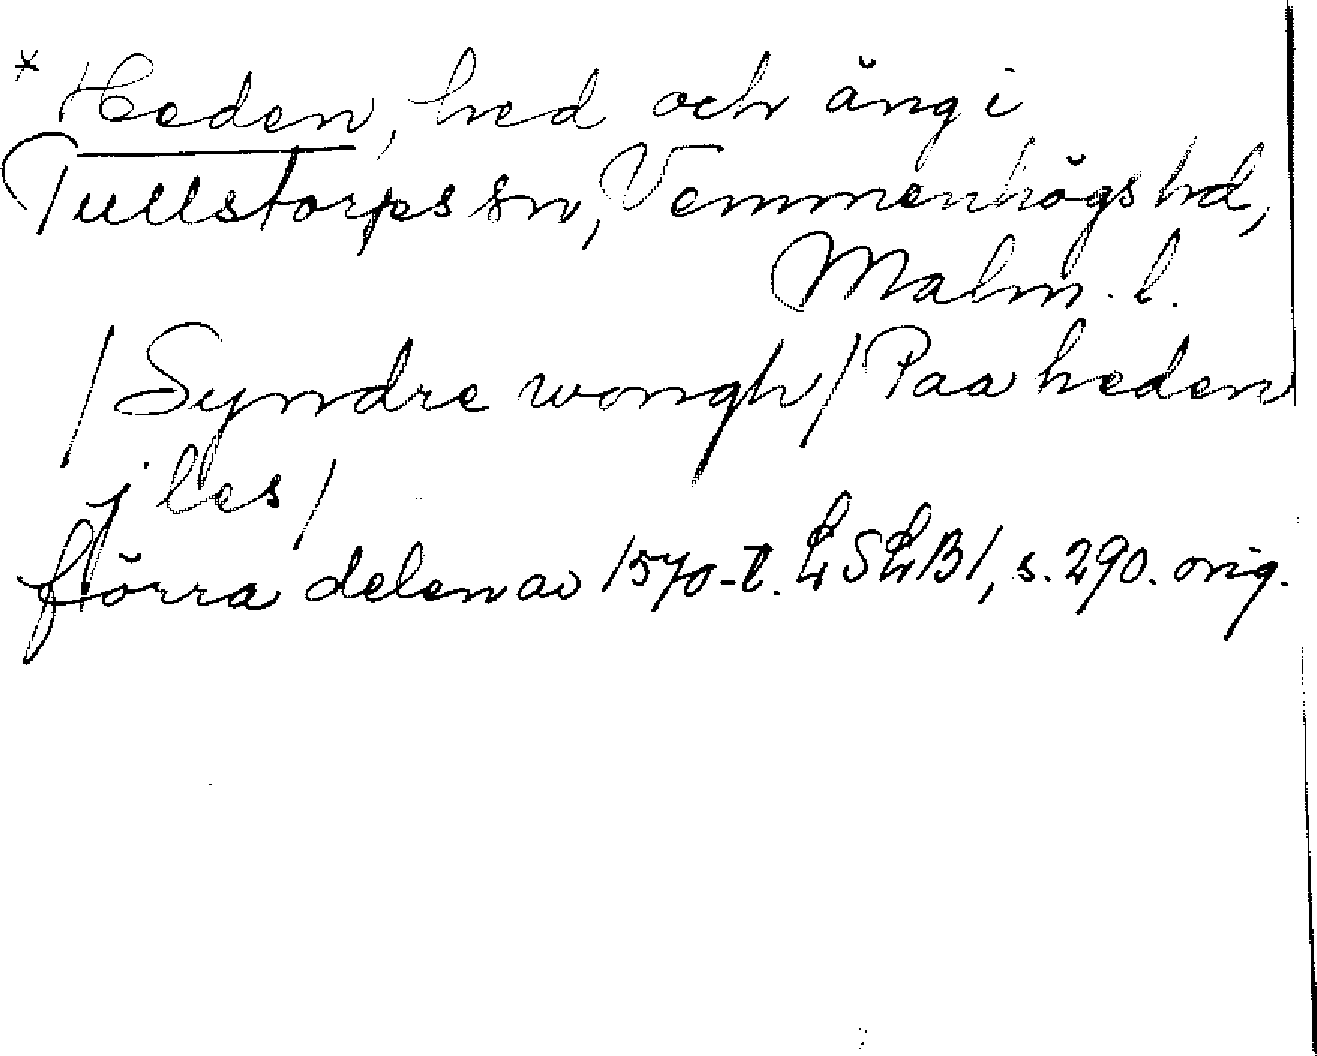 * Heden, hed och äng i
Tullstorps sn, Vemmenhögs hd,
Malm. l.
/Syndre wongh/ Paa heden
j les/
förra delen av 1570-t. LSLB1, s. 290. orig.